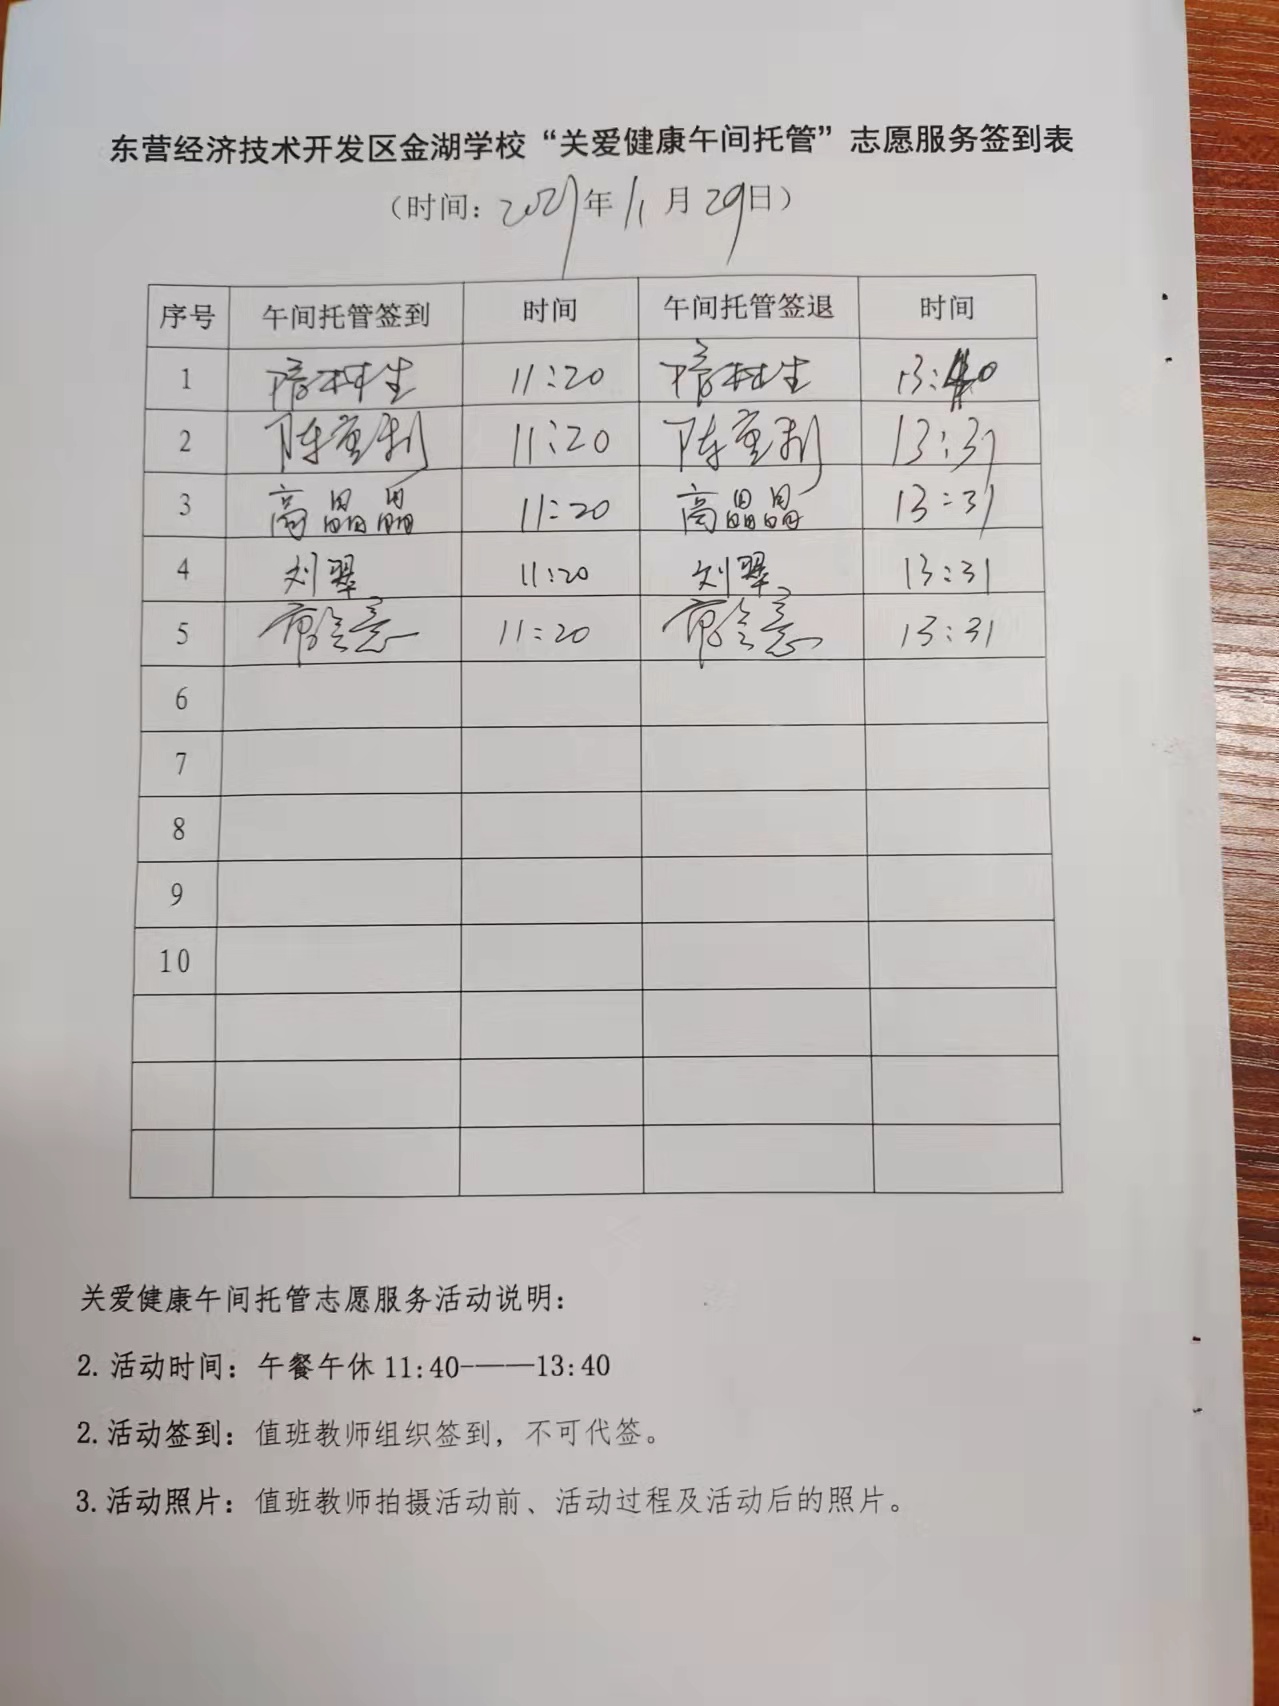 东营经济技术开发区金湖学校“关爱健康午间托管”志愿服务签到表
（时间：2021年11月29日）
序号 午间托管签到 时间 午间托管签退 时间
1 11:20 13:40
2 陈重利 11:20 陈重利 13:31
3 高晶晶 11:20 高晶晶 13:31
4 刘翠 11:20 刘翠 13:31
5 11:20 13:31
6
7
8
9
10
关爱健康午间托管志愿服务活动说明：
2.活动时间：午餐午休11:40-——13:40
2.活动签到：值班教师组织签到，不可代签。
3.活动照片：值班教师拍摄活动前、活动过程及活动后的照片。